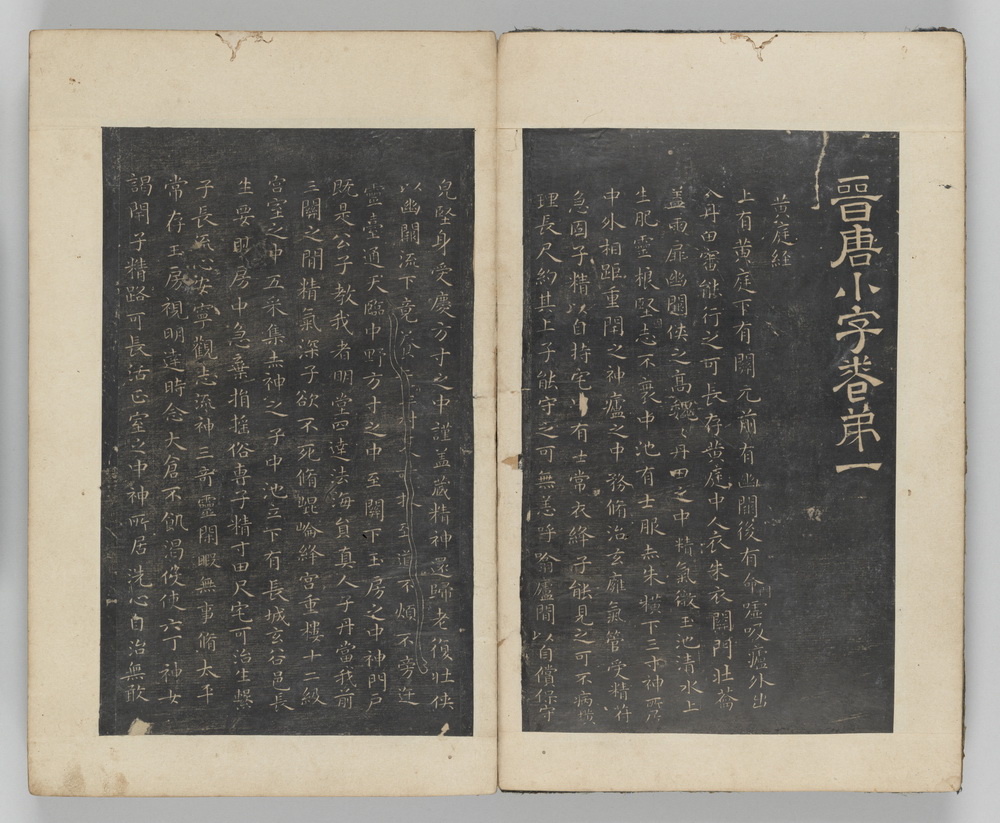 晉唐小字卷第一
黃庭経
上有黃庭下有關元前有幽闕後有命噓吸廬外出
入丹田審能行之可長存黃庭中人衣朱衣關門壯籥
蓋兩扉幽闕俠之高巍〻丹田之中精氣微玉池清水上
生肥靈根堅志不衰中池有士服赤朱橫下三寸神所居
中外相距重閉之神廬之中務脩治玄廱氣管受精苻
急固子精以自持宅中有士常衣絳子能見之可不病橫
理長尺約其上子能守之可無恙呼噏廬間以自償保守
皃堅身受慶方寸之中謹蓋藏精神還歸老復壯俠
以幽闕流下竟養樹杖至道不煩不旁迕
靈臺通天臨中野方寸之中至關下玉房之中神門戶
既是公子教我者明堂四達法海員真人子丹當我前
三關之間精氣深子欲不死脩崐崘絳宮重樓十二級
宮室之中五采集赤神之子中池立下有長城玄谷邑長
生要眇房中急棄捐搖俗專子精寸田尺宅可治生繫
子長流心安寧觀志流神三奇靈閑暇無事脩太平
常存玉房視明達時念大倉不飢渴役使六丁神女
謁閉子精路可長活正室之中神所居洗心自治無敢